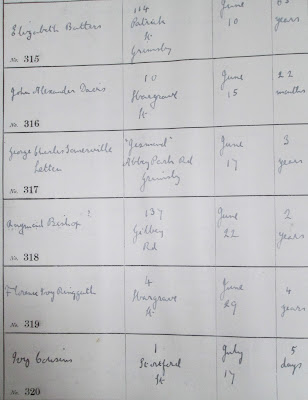 Elizabeth Butters
114
Patrick
St
Grimsby
June
10
years
No. 315
John Alexander Davis
10
Hargrave
St
June
15
22
months
No. 316
George Charles Somerville
Letten
"Jesmond"
Abbey Park Rd
Grimsby
June
17
3
years
No. 317
Raymond Bishop ?
137
Gilbey
Rd
June
22
2
years
No. 318
Florence Ivy
4
Hargrave
St
June
29
4
years
No. 319
Ivy Cousins
1
St
July
17
5
days
No. 320